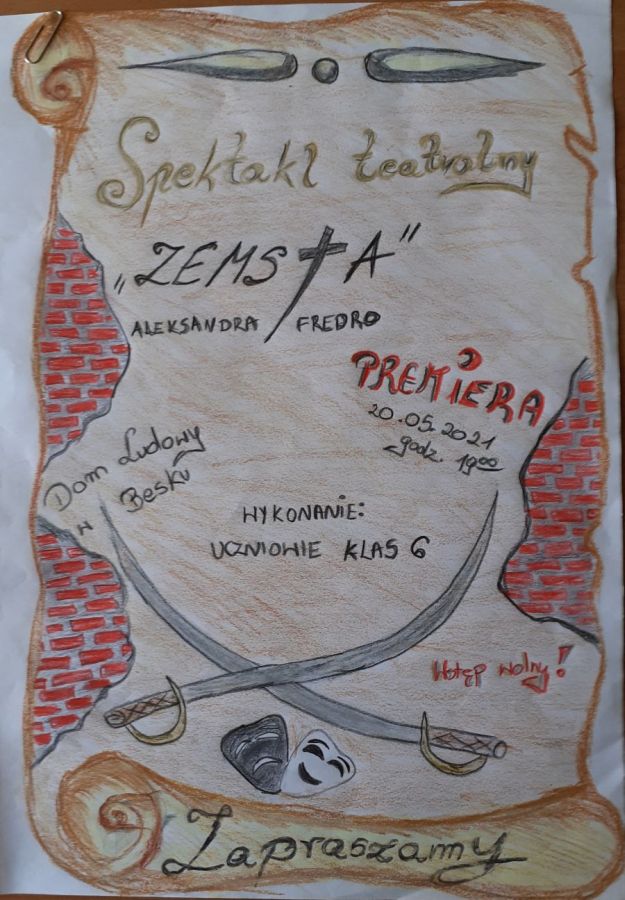 Spektakl teatralny
„ZEMSTA”
ALEKSANDRA FREDRO
PREMIERA
20.05.2021
godz. 19⁰⁰
Dom Ludowy
w Besku
WYKONANIE:
UCZNIOWIE KLAS 6
Wstęp wolny!
Zapraszamy